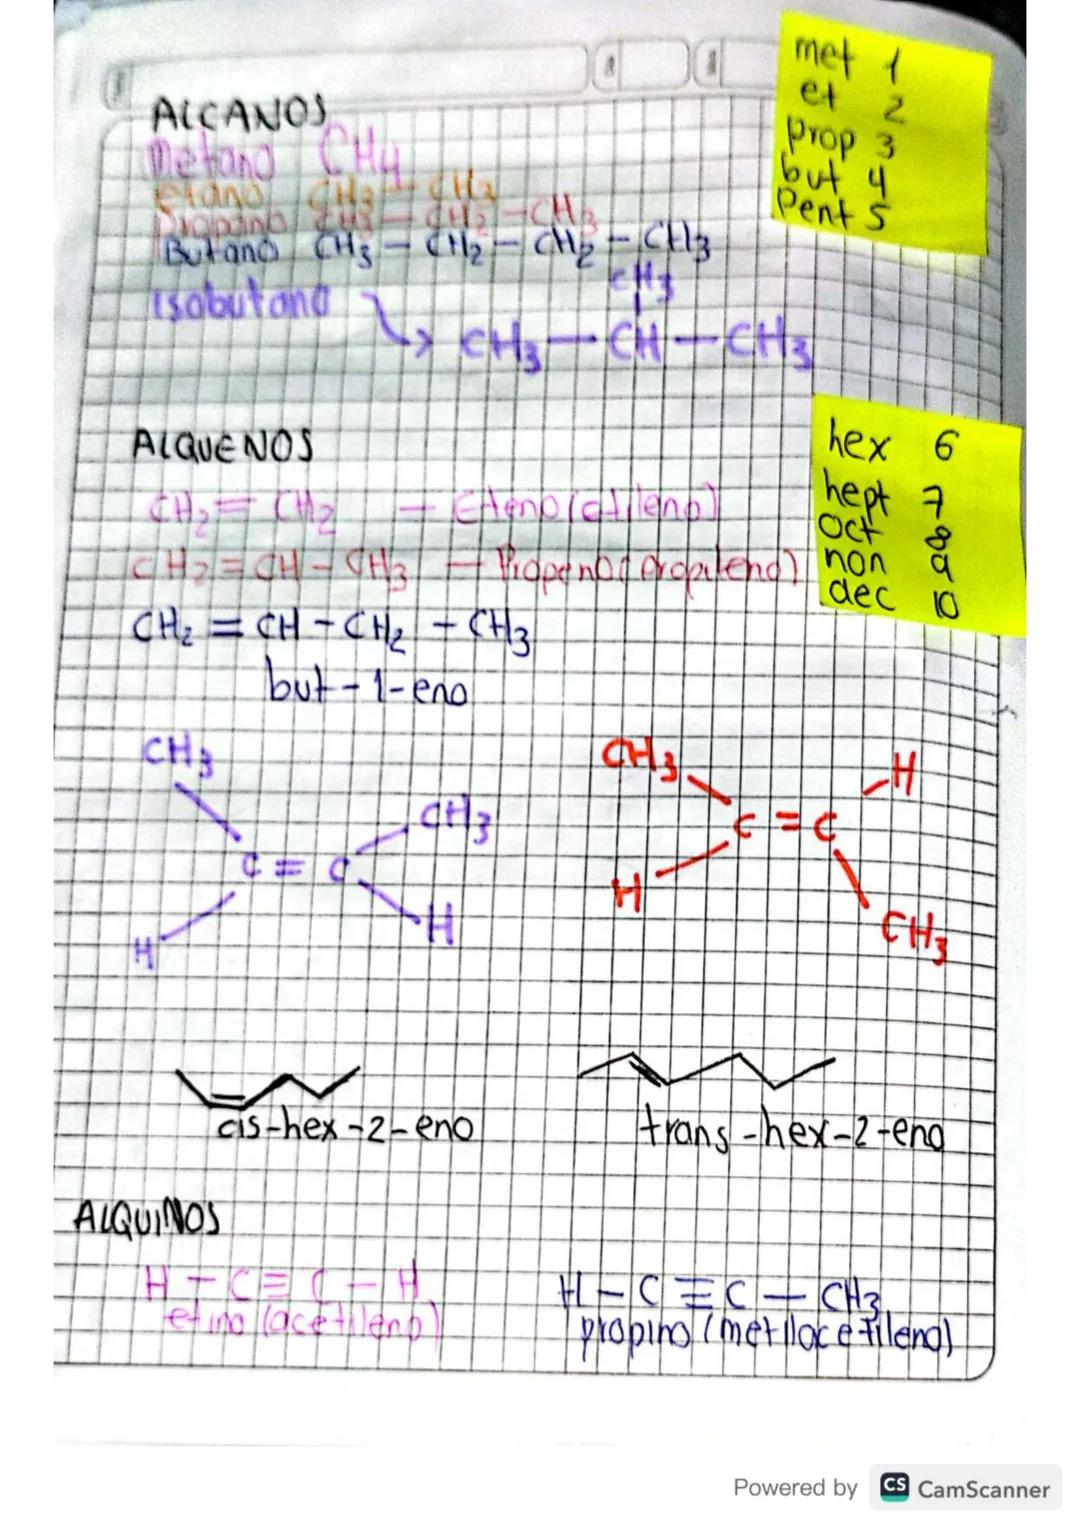 met 1
et 2
prop 3
but 4
Pent 5
ALCANOS
Metano CH4
etano CH3 — CH3
Propano CH3 — CH2 — CH3
Butano CH3 — CH2 — CH2 — CH3
Isobutano
CH3
CH3 — CH — CH3
hex 6
hept 7
Oct 8
non 9
dec 10
ALQUENOS
CH2 = CH2 — Eteno (etileno)
CH2 = CH — CH3 — Propeno (propileno)
CH2 = CH — CH2 — CH3
but-1-eno
CH3 CH3
C = C
H H
CH3 H
C = C
H CH3
cis-hex-2-eno
trans-hex-2-eno
ALQUINOS
H — C ≡ C — H
etino (acetileno)
H — C ≡ C — CH3
propino (metilacetileno)
Powered by CS CamScanner